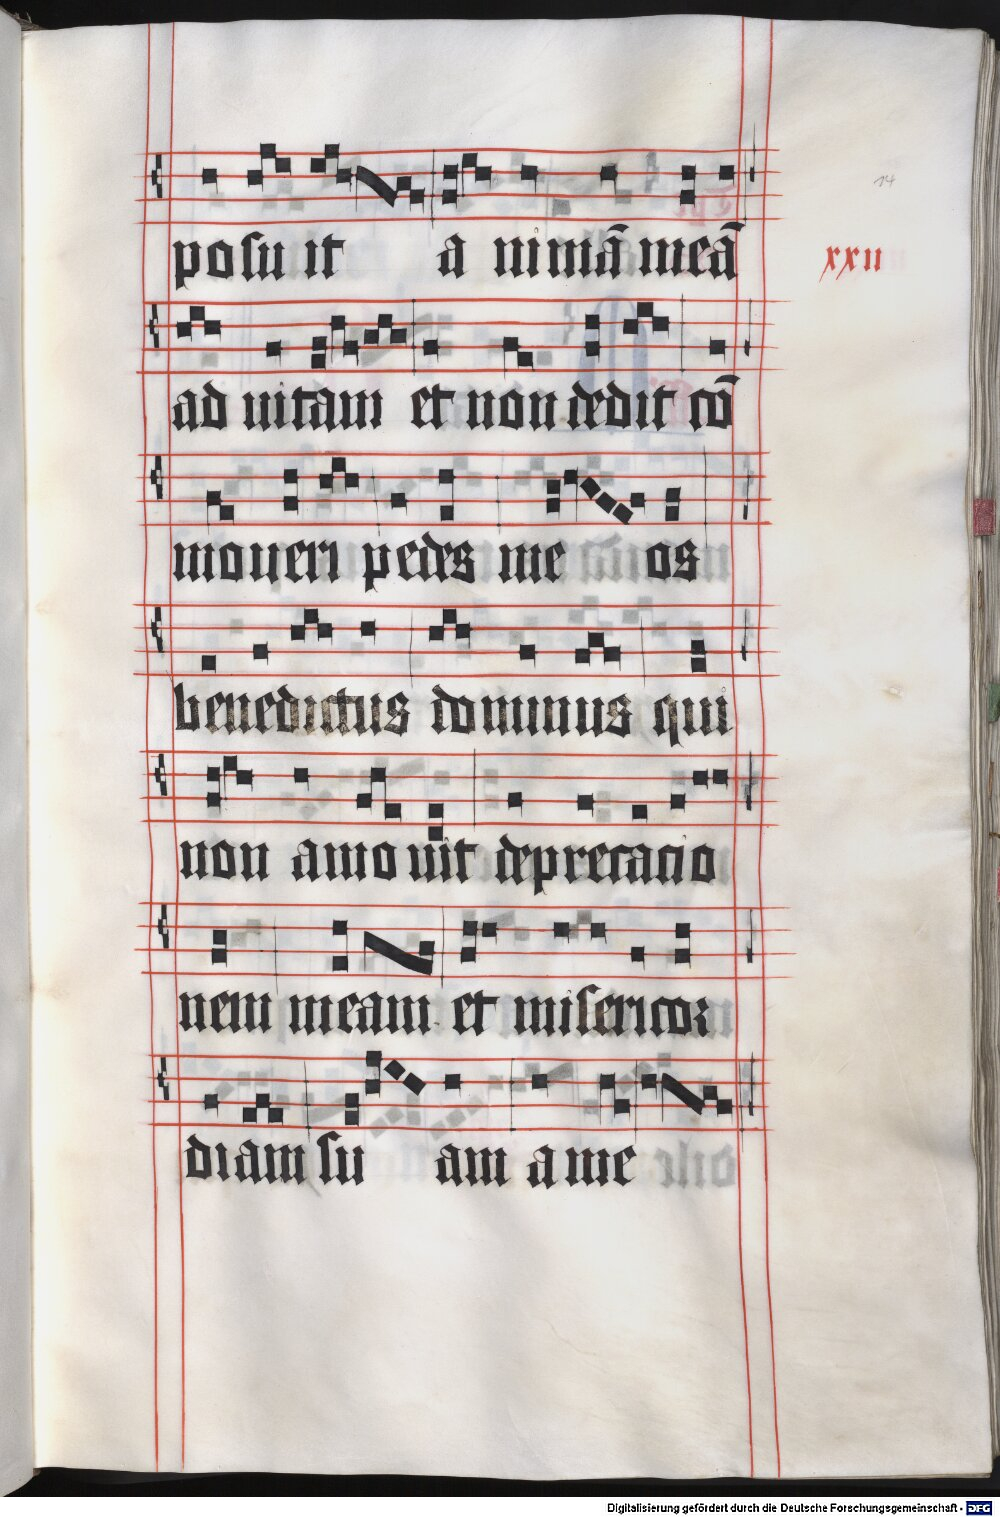 14
posuit a nimā meā
xxii
ad uitam et non dedit cō
moueri pedes me os
benedictus dominus qui
non amouit deprecatio
nem meam et misericor
diam su am a me
Digitalisierung gefördert durch die Deutsche Forschungsgemeinschaft - DFG